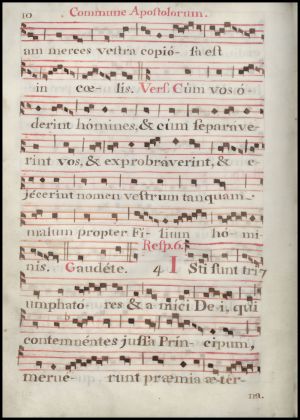 10 Commune Apostolorum.
am merces vestra copió- sa est
in cœ- lis. Vers. Cùm vos ó-
derint hómines, & cùm separave-
rint vos, & exprobraverint, & e-
jécerint nomen vestrum tanquam
malum propter Fi- lium hó- mi-
nis. Gaudéte. Resp. 6. 4 ISti sunt tri-
umphato- res & amici De-i, qui
contemnéntes jussa Prín- cipum,
merue- runt præmia æ-ter-
na.